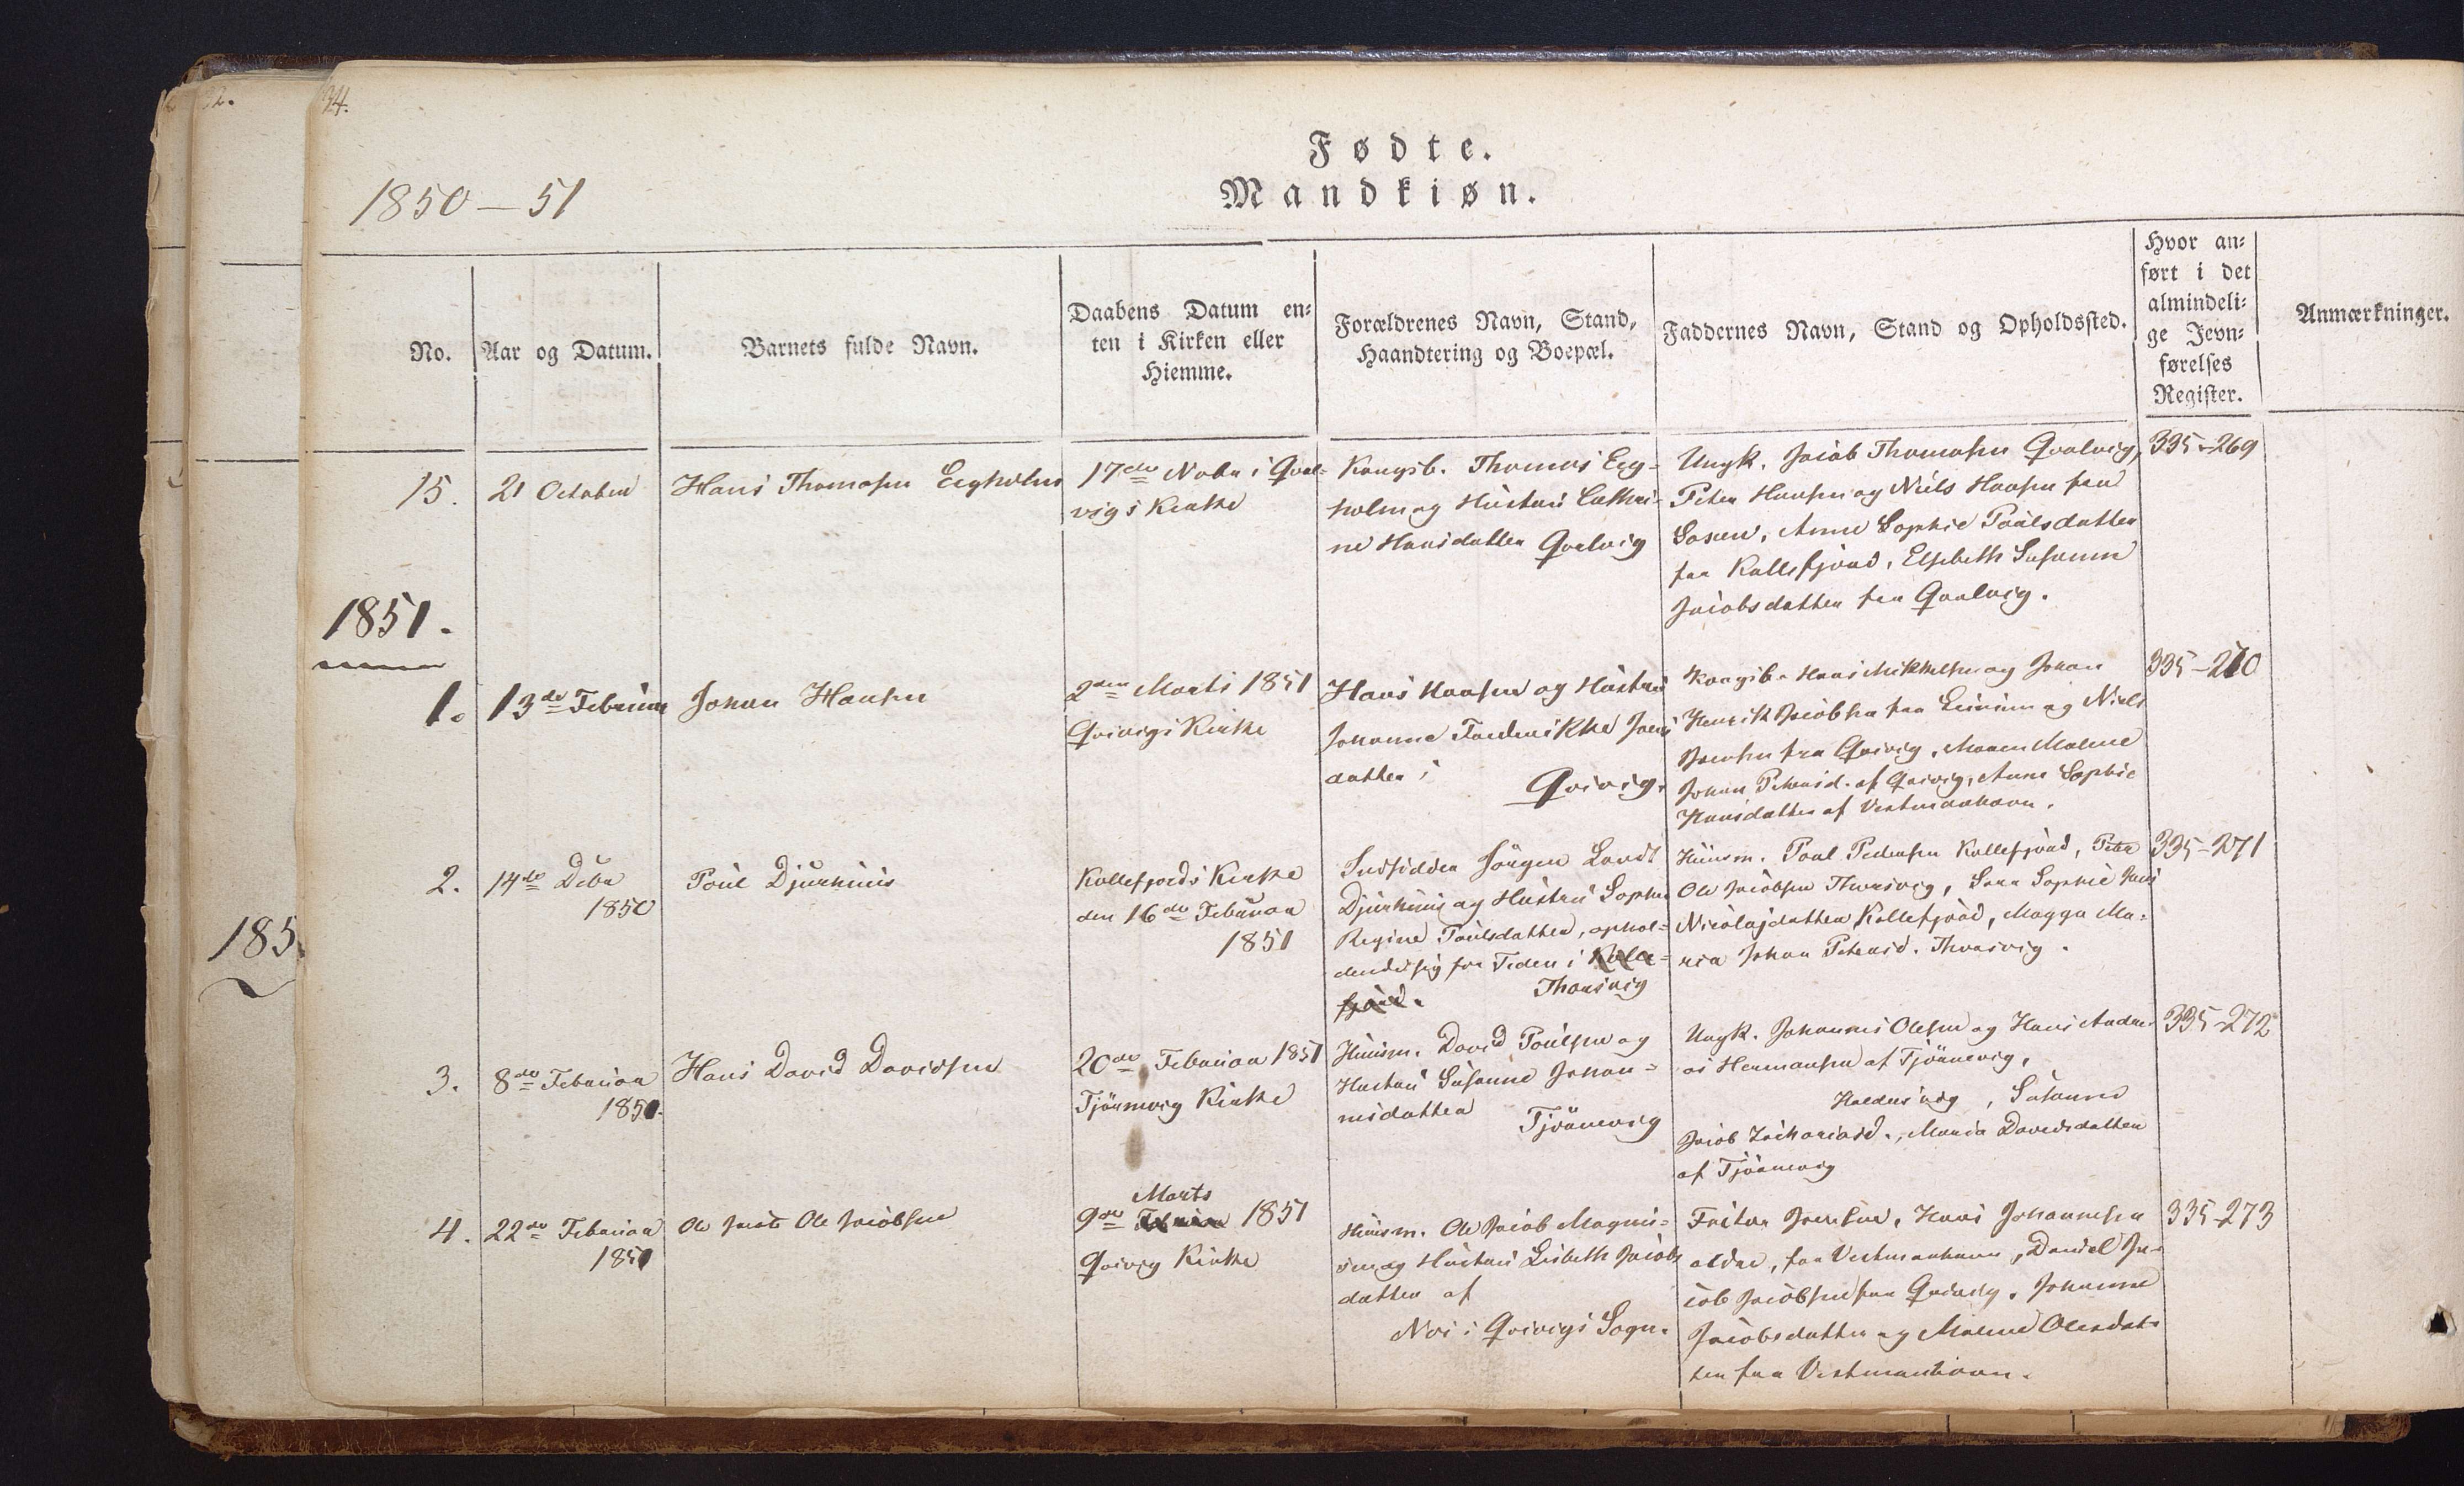 32.
34.
Fødte.
Mandkiøn.
1850 – 51
No.
Aar og Datum.
Barnets fulde Navn.
Daabens Datum en-
ten i Kirken eller
Hiemme.
Forældrenes Navn, Stand,
Haandtering og Boepæl.
Faddernes Navn, Stand og Opholdssted.
Hvor an-
ført i det
almindeli-
ge Jevn-
førelses
Register.
Anmærkninger.
15.
21 October
Hans Thomasen Eegholm
17de Novbr i Qval-
vigs Kirke
Kongsb. Thomas Eeg-
holm og Hustru Cathri-
ne Hansdatter Qvalvig
Ungk. Jacob Thomasen Qvalvig,
Peter Hansen og Niels Hansen fra
Saxen, Anne Sophie Poulsdatter
fra Kollefjord, Elsebeth Susanne
Jacobsdatter fra Qvalvig.
335-269
1851.
1.
13de Februar
Johan Hansen
2den Marts 1851
Qvivigs Kirke
Hans Hansen og Hustru
Johanne Frederikke Jens
datter i
Qvivig.
Kongsb. Hans Mikkelsen og Johan
Henrik Jacobsen fra Leinum og Niels
Joensen fra Qvivig, Maren Malene
Johan Petersd. af Qvivig, Anne Sophie
Hansdatter af Vestmanhavn.
335-270
2.
14de Debr
1850
Poul Djurhuus
Kollefjords Kirke
den 16de Februar
1851
Indsidder Jörgen Landt
Djurhuus og Hustru Sophie
Regine Poulsdatter, ophol-
dende sig for Tiden i Kolle-
fjord.
Thorsvig
Huusm. Poul Pedersen Kollefjord, Peter
Ole Jacobsen Thorsvig, Sara Sophie Jens
Nicolajdatter Kollefjord, Magga Ma-
ria Johan Petersd. Thorsvig.
335-271
185
3.
8de Februar
1851.
Hans David Davidsen
20de Februar 1851
Tjörnevig Kirke
Huusm. David Poulsen og
Hustru Susanne Johan-
nisdatter
Tjörnevig
Ungk. Johannes Olesen og Hans Andre-
as Hermansen af Tjörnevig,
Haldersvig, Susanne
Jacob Zachariasd., Maria Davidsdatter
af Tjörnevig
335-272
4.
22de Februar
1851
Ole Jacob Ole Jacobsen
Marts
9de Februar 1851
Qvivig Kirke
Huusm. Ole Jacob Magnus-
sen og Hustru Lisbeth Jacobs
datter af
Qvivigs Sogn.
Joensen, Hans Johannesen
ældre, fra Vestmanhavn, Daniel Ja-
cob Jacobsen fra Qvivig, Johanne
Jacobsdatter og Malene Olesdat-
ter fra Vestmanhavn.
335-273